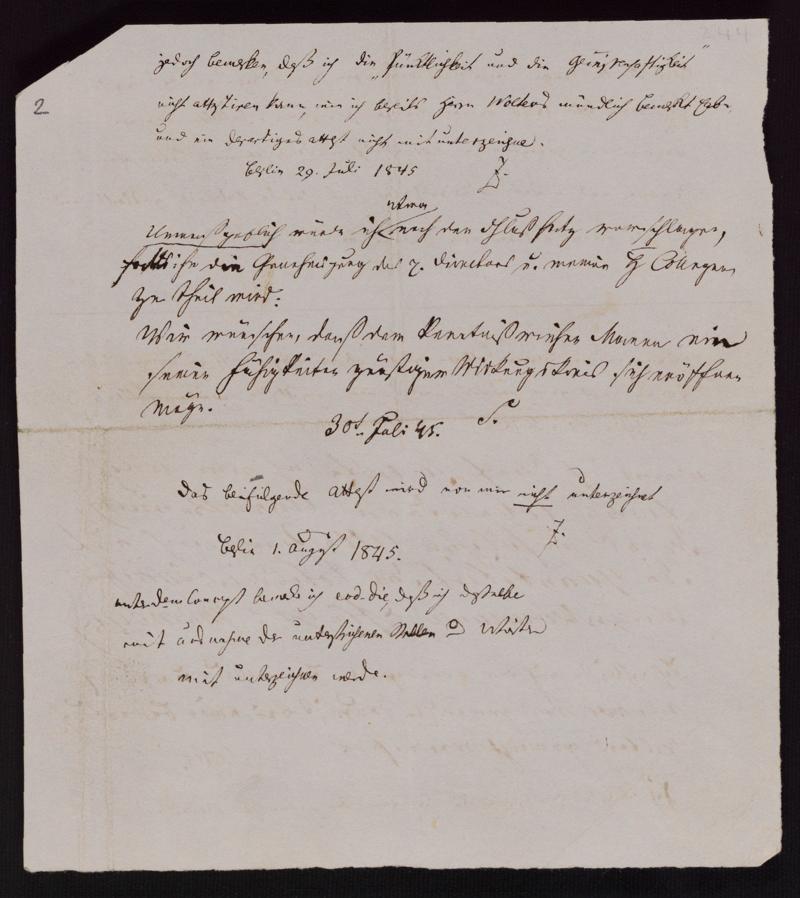 244
2
jedoch bemerken, daß ich die „Pünktlichkeit und die Gewissenhaftigkeit"
nicht attestiren kann, wie ich bereits Herrn Wolters mündlich bemerkt habe,
und ein derartiges Attest nicht mit unterzeichne.
Berlin 29. Juli 1845 J.
etwa
Unmaßgeblich würde ich noch den Schlußsatz vorschlagen,
falls ihr die Genehmigung des p. Directors u. meiner H Collegen
zu Theil wird:
Wir wünschen, daß dem kenntnißreichen Manne ein
seinen Fähigkeiten günstiger Wirkungskreis sich eröffnen
möge.
30t Juli 45. S.
Das beifolgende Attest wird von mir nicht unterzeichnet
J.
Berlin 1. August 1845.
unter dem Concept bemerkte ich eod. die, daß ich dasselbe
mit Ausnahme der unterstrichenen Stellen
mit unterzeichnen werde.